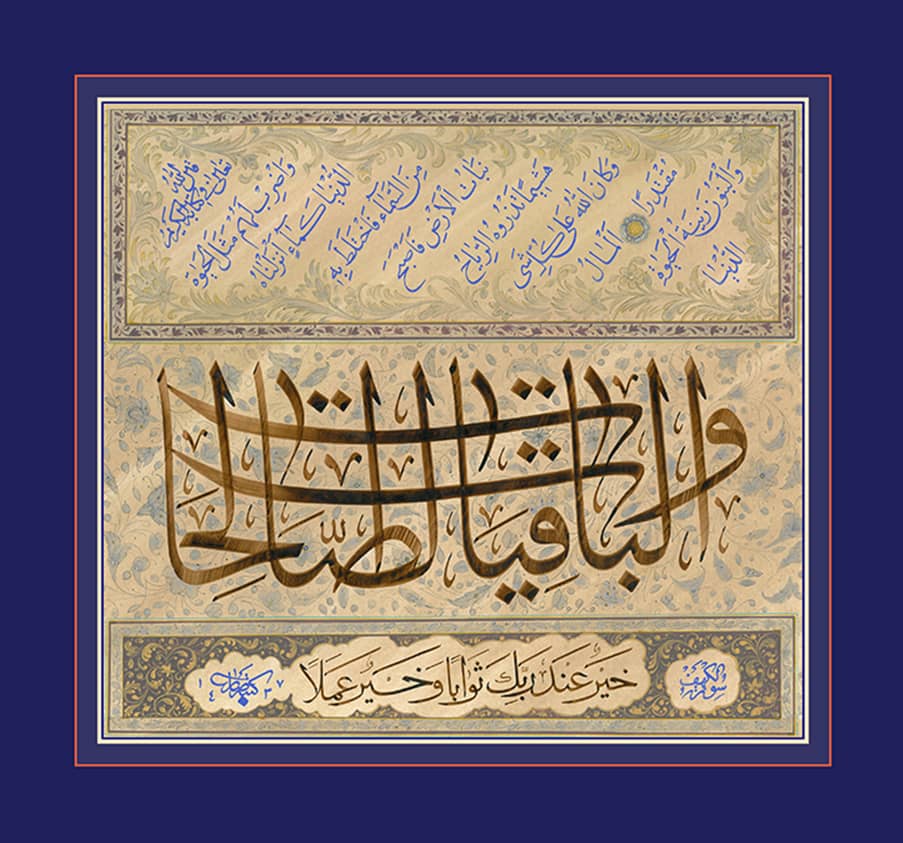 قال الله
تعالى في كتابه الكريم
وَاضْرِبْ لَهُمْ مَثَلَ الْحَيٰوةِ
الدُّنْيَا كَمَاءٍ أَنْزَلْنَاهُ
مِنَ السَّمَاءِ فَاخْتَلَطَ بِهِ
نَبَاتُ الْأَرْضِ فَأَصْبَحَ
هَشِيمًا تَذْرُوهُ الرِّيَاحُ
وَكَانَ اللهُ عَلَى كُلِّ شَيْءٍ
مُقْتَدِرًا اَلْمَالُ
وَالْبَنُونَ زِينَةُ الْحَيٰوةِ
الدُّنْيَا
وَالْبَاقِيَاتُ الصَّالِحَاتُ
سورة الكهف
خَيْرٌ عِنْدَ رَبِّكَ ثَوَابًا وَخَيْرٌ عَمَلًا
١٤٣٧